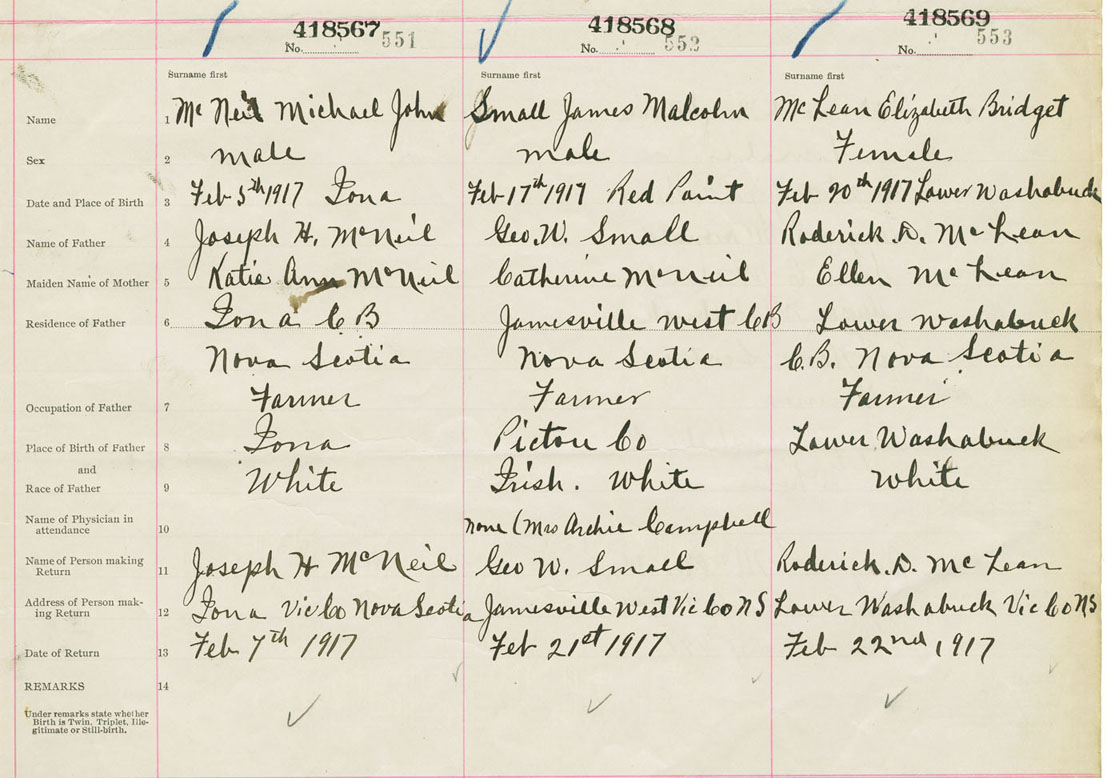 418567 418568 418569
No. 551 No. 552 No. 553
Surname first Surname first Surname first
Name 1 McNeil Michael John Small James Malcolm McLean Elizabeth Bridget
Sex 2 male male Female
Date and Place of Birth 3 Feb 5th 1917 Iona Feb 17th 1917 Red Point Feb 20th 1917 Lower Washabuck
Name of Father 4 Joseph H. McNeil Geo. W. Small Roderick. D. McLean
Maiden Name of Mother 5 Katie Ann McNeil Catherine McNeil Ellen McLean
Residence of Father 6 Iona C B Jamesville West C B Lower Washabuck
Nova Scotia Nova Scotia C.B. Nova Scotia
Occupation of Father 7 Farmer Farmer Farmer
Place of Birth of Father 8 Iona Pictou Co Lower Washabuck
and
Race of Father 9 White Irish. White White
Name of Physician in
attendance 10 none (Mrs Archie Campbell
Name of Person making
Return 11 Joseph H McNeil Geo W. Small Roderick. D. McLean
Address of Person mak-
ing Return 12 Iona Vic Co Nova Scotia Jamesville West Vic Co N S Lower Washabuck Vic Co N S
Date of Return 13 Feb 7th 1917 Feb 21st 1917 Feb 22nd 1917
REMARKS 14
Under remarks state whether
Birth is Twin, Triplet, Ille-
gitimate or Still-birth.